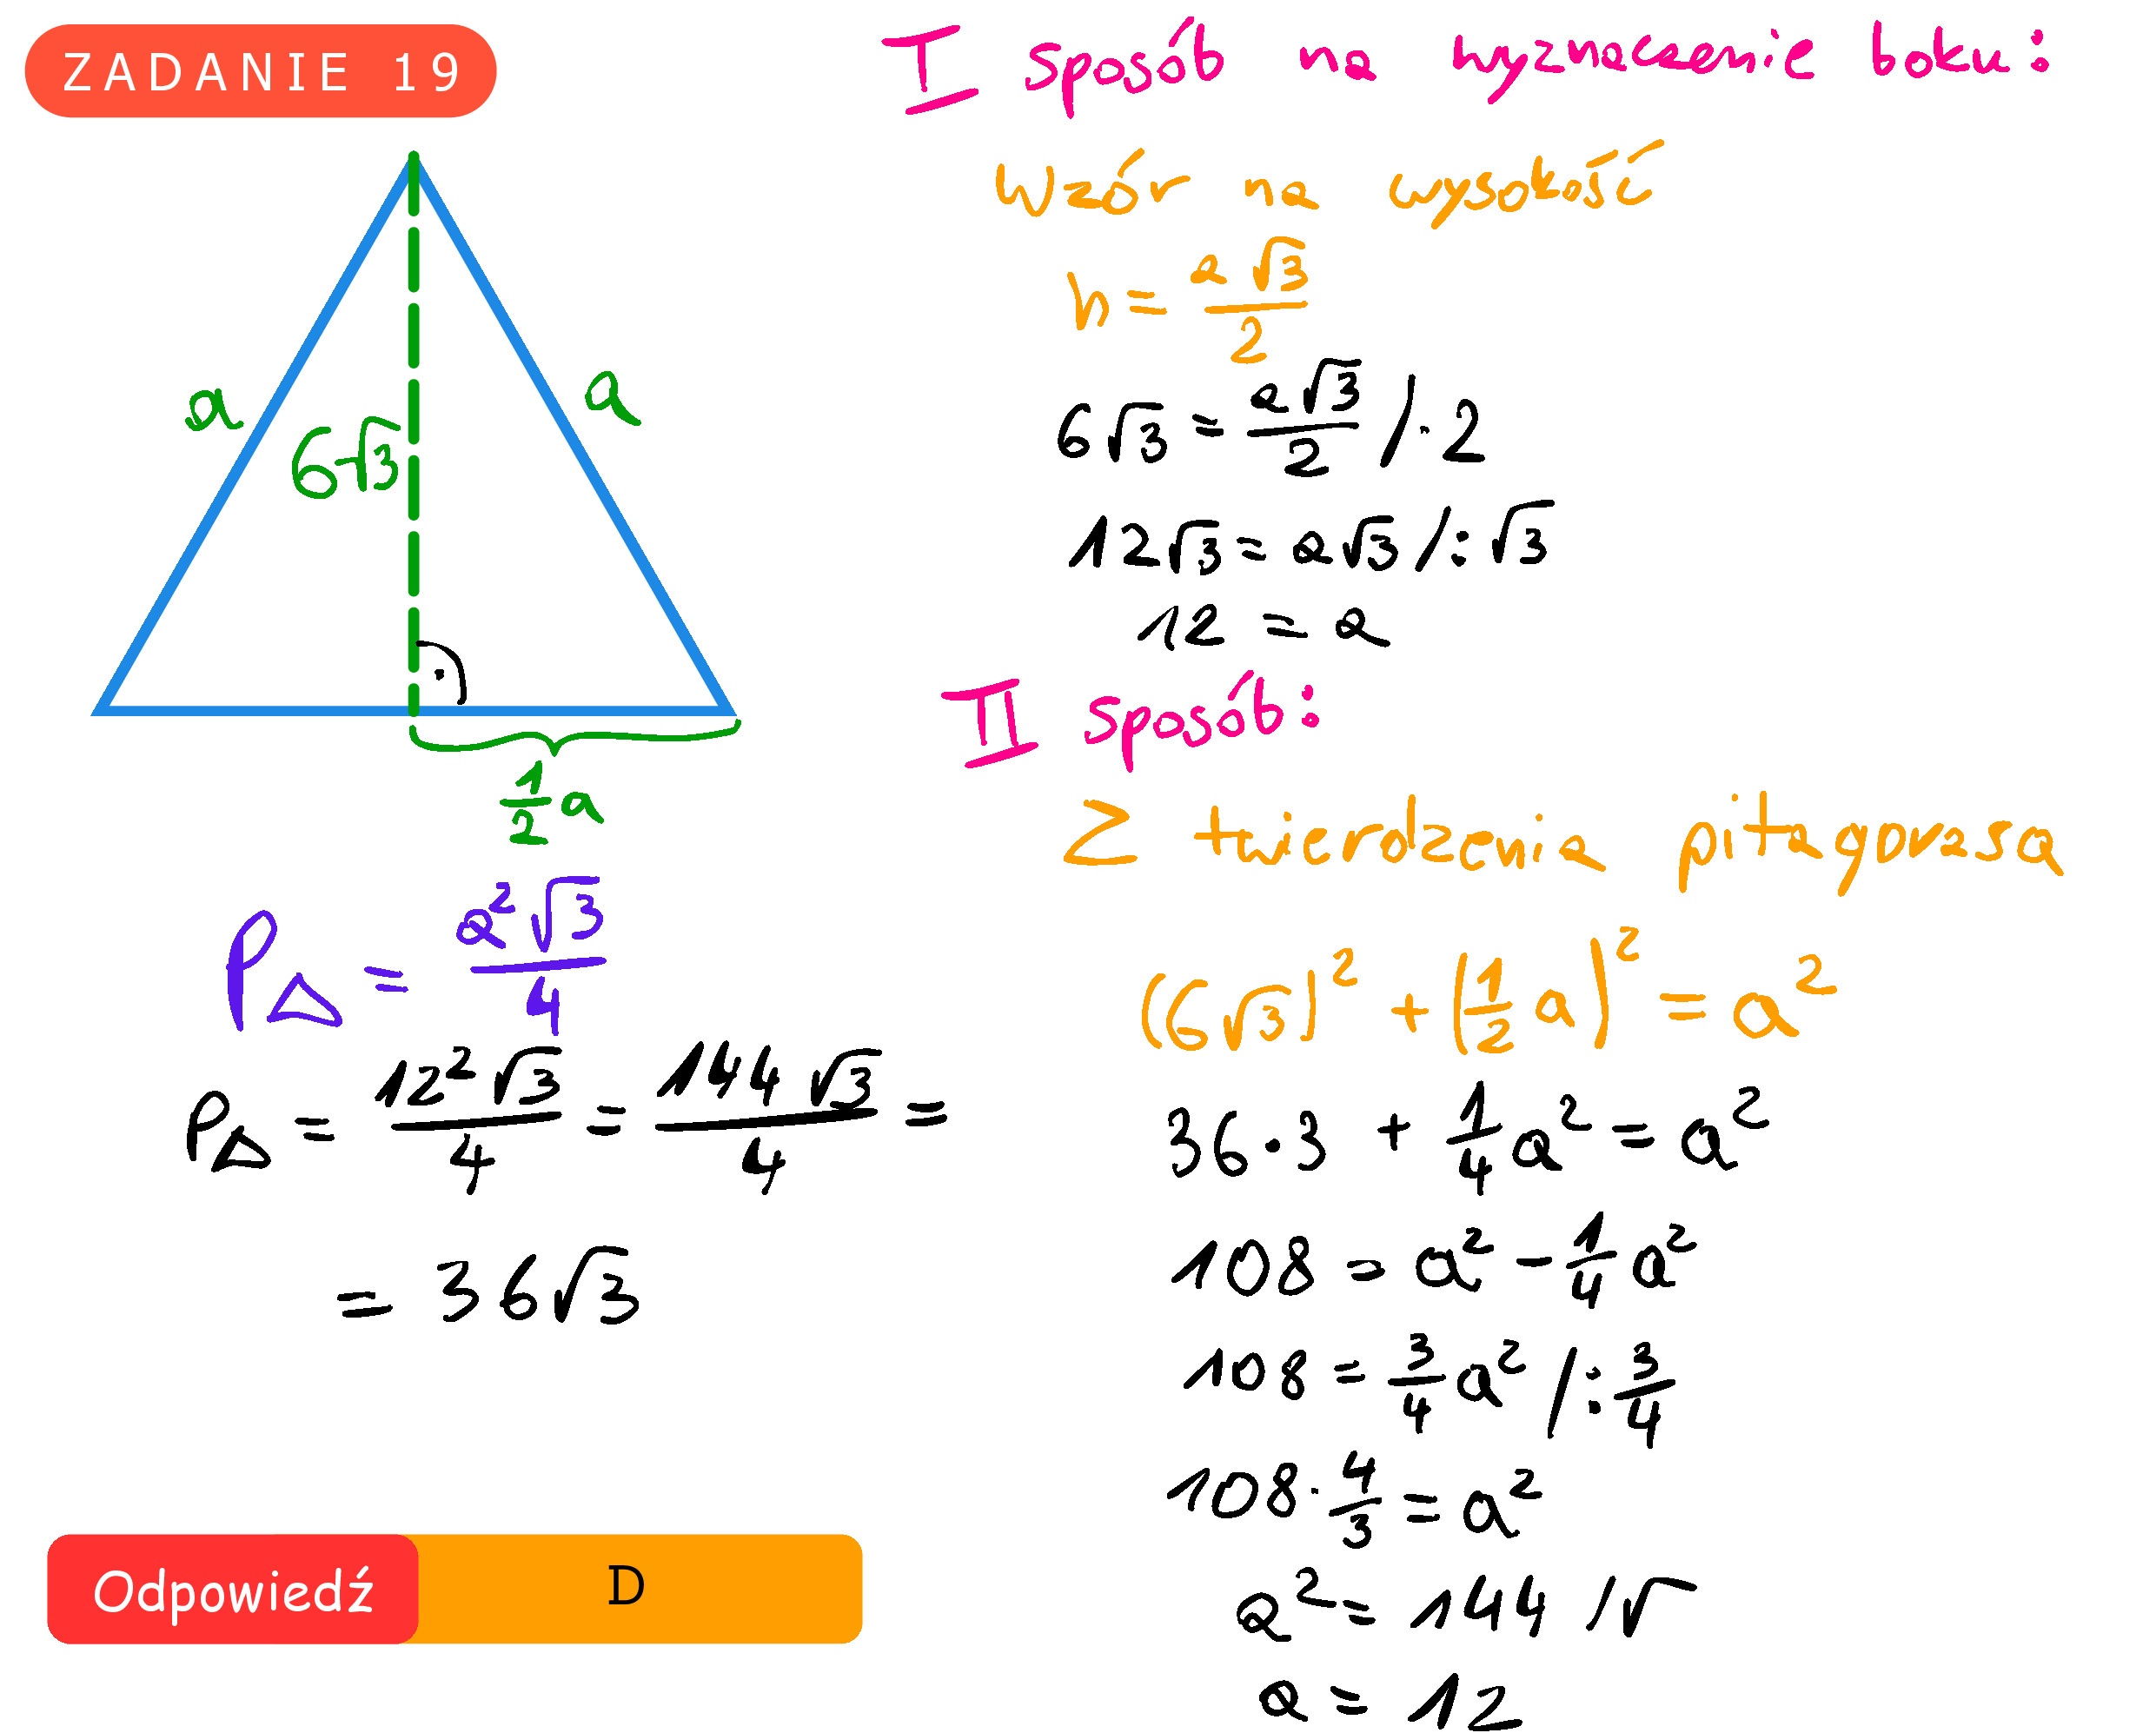 ZADANIE 19
a
6√3
a
1/2 a
P△ = a²√3/4
P△ = 12²√3/4 = 144√3/4 =
= 36√3
Odpowiedź D
I sposób na wyznaczenie boku:
Wzór na wysokość
h = a√3/2
6√3 = a√3/2 /·2
12√3 = a√3 /:√3
12 = a
II sposób:
Z twierdzenia pitagorasa
(6√3)² + (1/2 a)² = a²
36·3 + 1/4 a² = a²
108 = a² - 1/4 a²
108 = 3/4 a² /: 3/4
108 · 4/3 = a²
a² = 144 /√
a = 12